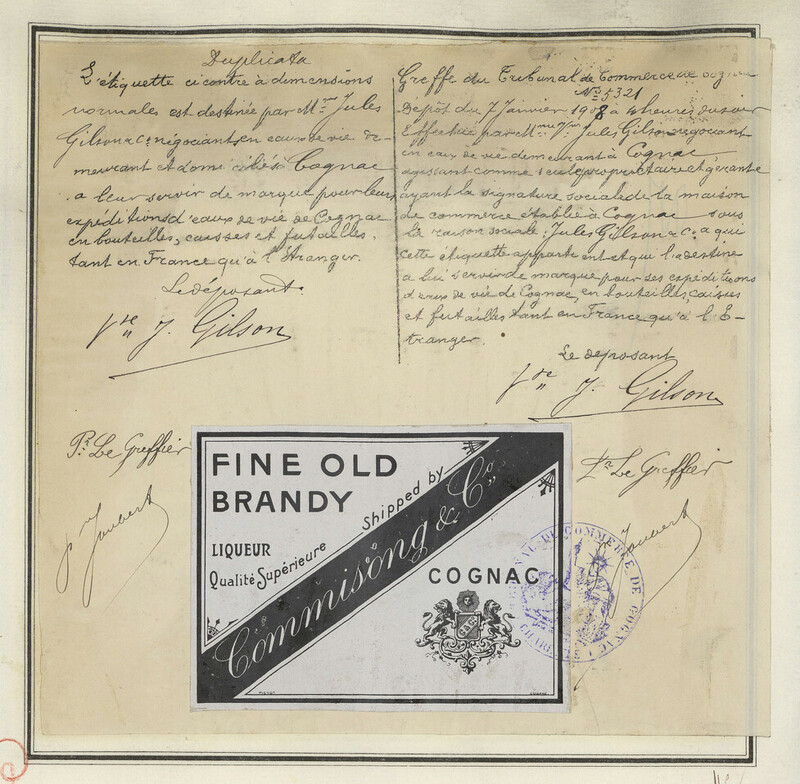 Duplicata
L'étiquette ci contre à dimensions
normales est destinée par Mme Jules
Gilson & Co négociants en eaux de vie de-
meurant et domiciliés Cognac
a leur servir de marque pour leurs
expéditions d'eaux de vie de Cognac
en bouteilles, caisses et futailles,
tant en France qu'à l'Etranger.
Le déposant.
Vve J. Gilson
Greffe du Tribunal de Commerce de Cognac
No 5321
Dépôt du 7 Janvier 1908 à 4 heures du soir
Effectué par Mme Vve Jules Gilson négociant
en eaux de vie demeurant à Cognac
agissant comme seule propriétaire et gérante
ayant la signature sociale de la maison
de commerce établie à Cognac sous
la raison sociale: Jules Gilson & Co a qui
cette étiquette appartient et qui l'a destine
a lui servir de marque pour ses expéditions
d'eaux de vie de Cognac, en bouteilles, caisses
et futailles tant en France qu'à l'E-
tranger.
Le déposant
Vve J. Gilson
Pr Le Greffier
Joubert
Pr Le Greffier
Joubert
FINE OLD
BRANDY
LIQUEUR
Qualité Supérieure
Shipped by
Commisöng & Co.
COGNAC
TRIBUNAL DE COMMERCE DE COGNAC
CHARENTE